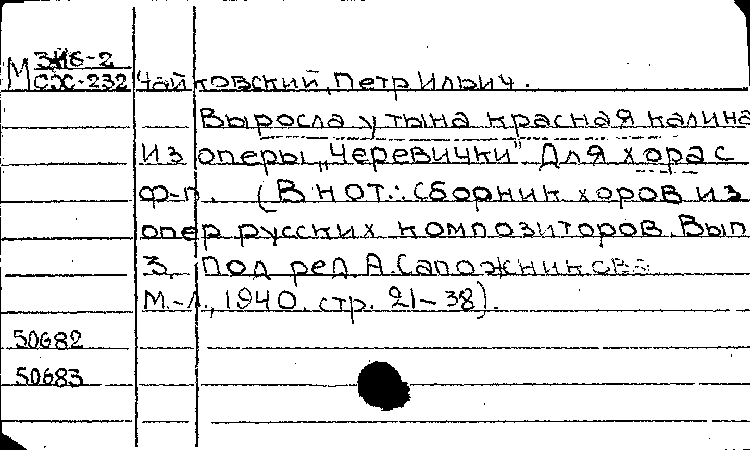 М 3И6-2
СХ-232 Чайковский, Петр Ильич.
Выросла у тына красная калина
Из оперы „Черевички". Для хора с
ф-п. (В нот.: Сборник хоров из
опер русских композиторов. Вып
3. Под ред. А. Сапожникова
М.-Л., 1940. стр. 21-38).
50682
50683